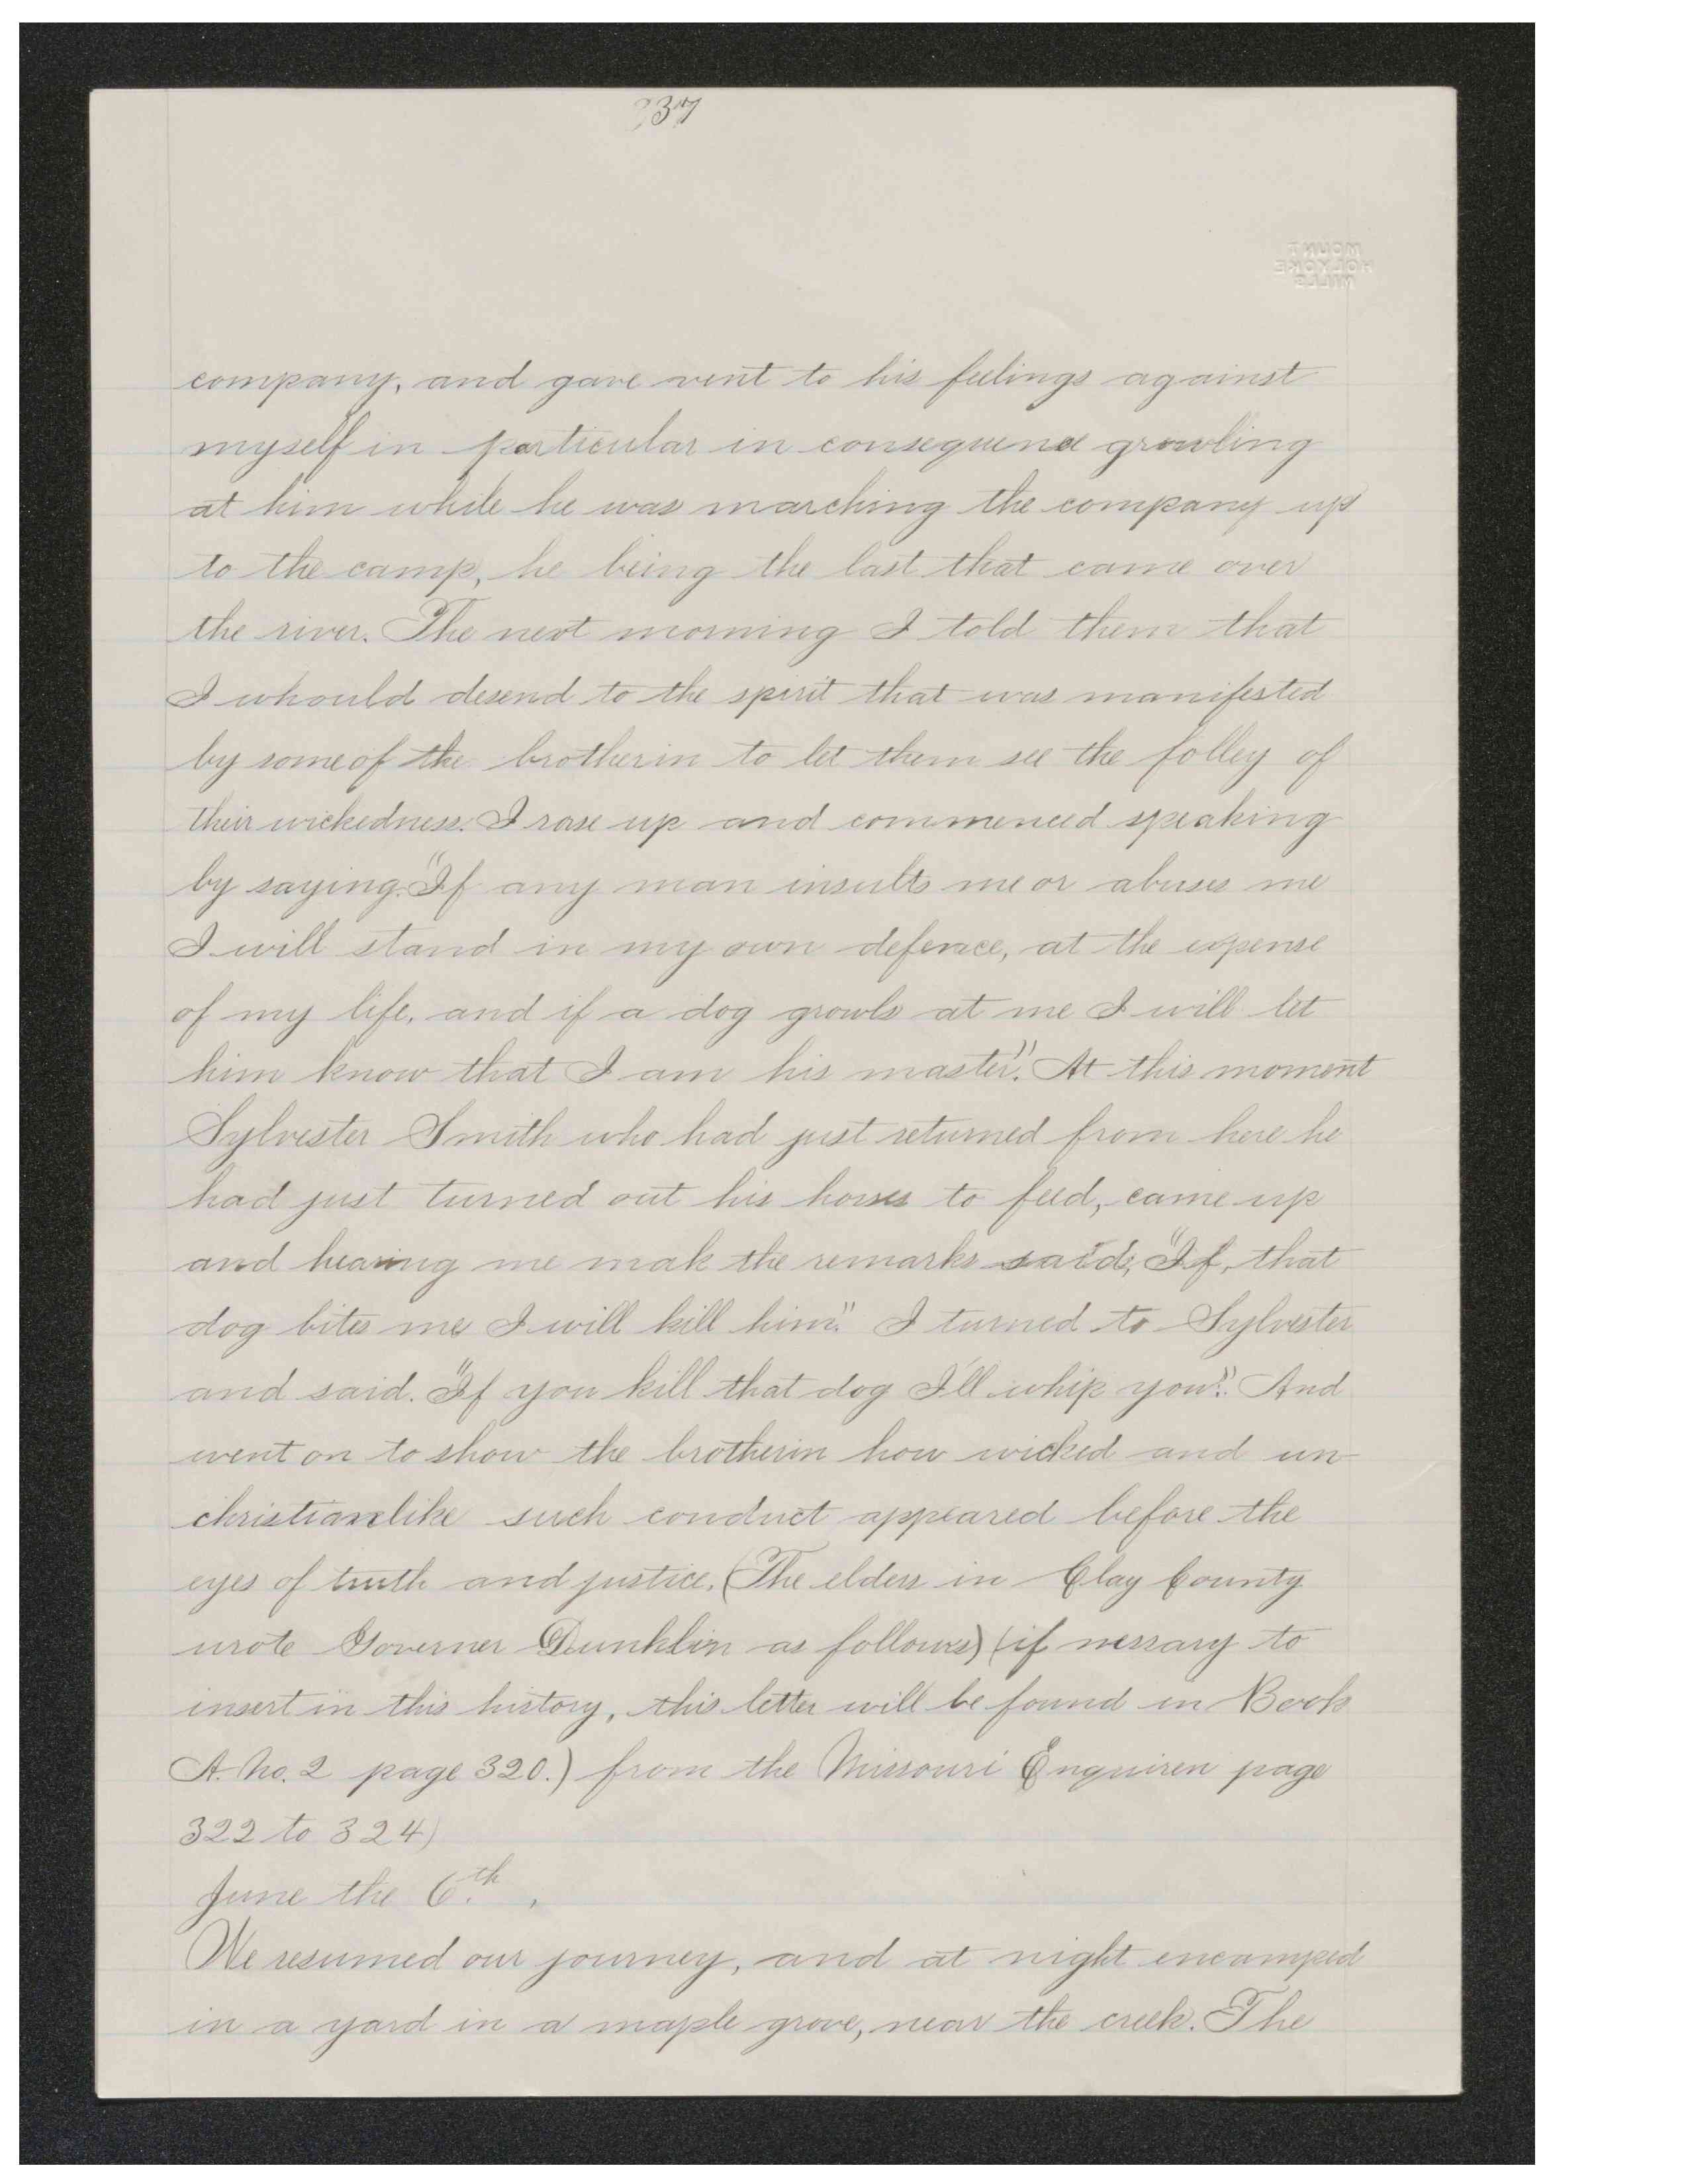 237
MOUNT
HOLYOKE
MILLS
company, and gave vent to his feelings against
myself in particular in consequence growling
at him while he was marching the company up
to the camp, he being the last that came over
the river. The next morning I told them that
I whould desend to the spirit that was manifested
by some of the brotherin to let them see the folley of
their wickedness. I rose up and commenced speaking
by saying. "If any man insults me or abuses me
I will stand in my own defence, at the expense
of my life, and if a dog growls at me I will let
him know that I am his master." At this moment
Sylvester Smith who had just returned from here he
had just turned out his horses to feed, came up
and hearing me mak the remarks said, "If, that
dog bites me I will kill him." I turned to Sylvester
and said. "If you kill that dog I'll whip you." And
went on to show the brotherin how wicked and un-
christianlike such conduct appeared before the
eyes of truth and justice. (The elders in Clay County
wrote Governer Dunklin as follows) (if nessary to
insert in this history, this letter will be found in Book
A. No. 2 page 320.) from the Missouri Enquiren page
322 to 324)
June the 6.th,
We resumed our journey, and at night encamped
in a yard in a maple grove, near the creek. The